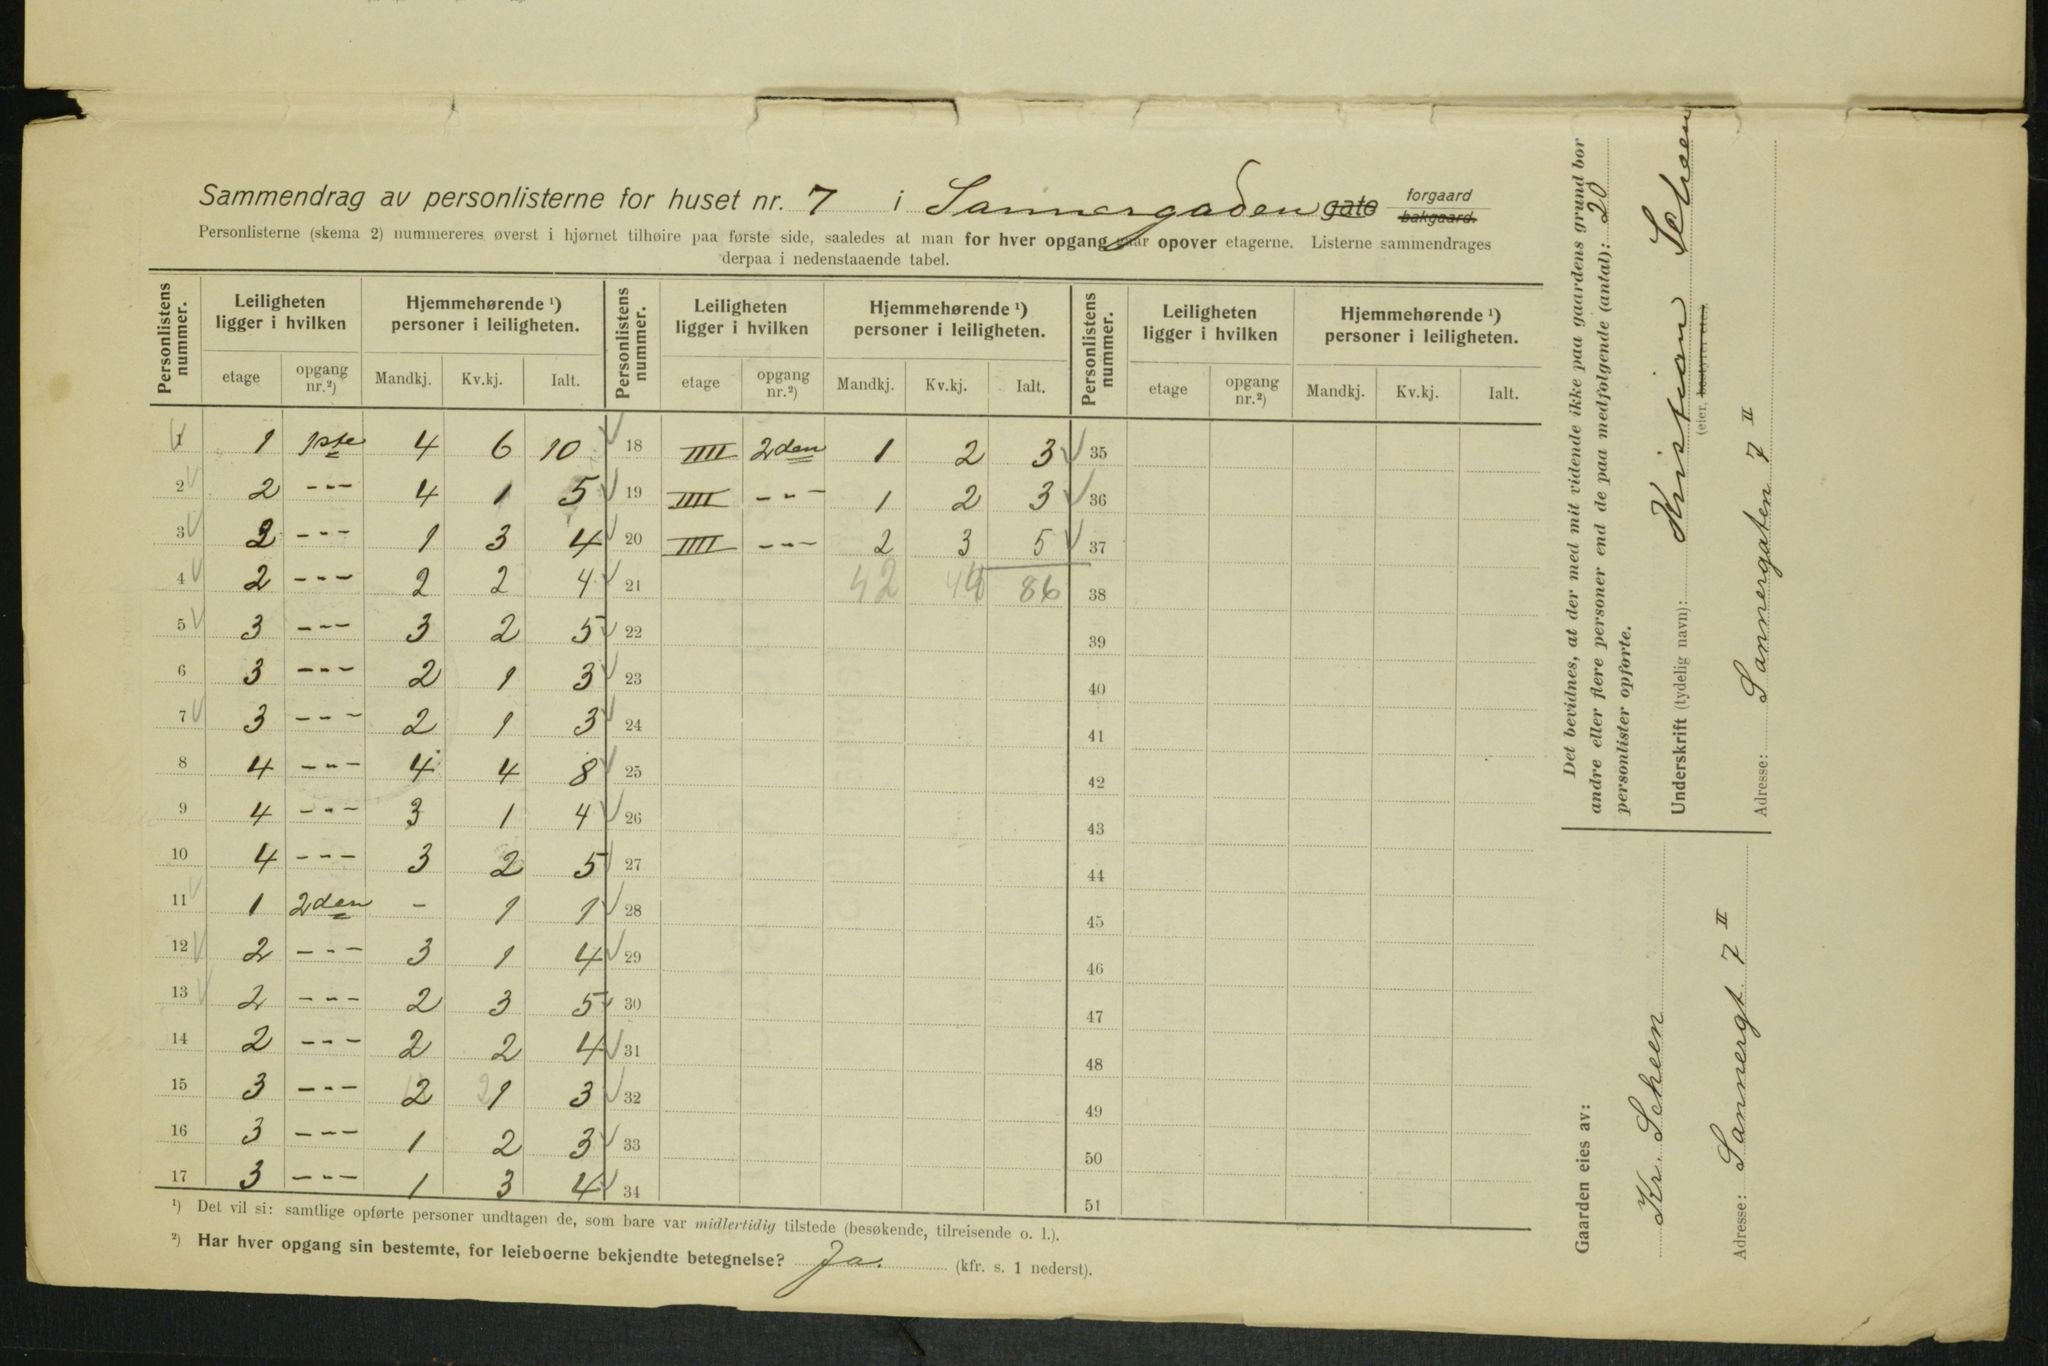 Sammendrag av personlisterne for huset nr. 7 i Sannergaden gate forgaard bakgaard.
Personlisterne (skema 2) nummereres øverst i hjørnet tilhøire paa første side, saaledes at man for hver opgang gaar opover etagerne. Listerne sammendrages
derpaa i nedenstaaende tabel.
Personlistens nummer. Leiligheten ligger i hvilken Hjemmehørende ¹) personer i leiligheten. Personlistens nummer. Leiligheten ligger i hvilken Hjemmehørende ¹) personer i leiligheten. Personlistens nummer. Leiligheten ligger i hvilken Hjemmehørende ¹) personer i leiligheten.
etage opgang nr.²) Mandkj. Kv.kj. Ialt. etage opgang nr.²) Mandkj. Kv.kj. Ialt. etage opgang nr.²) Mandkj. Kv.kj. Ialt.
1 1 1ste 4 6 10 18 IIII 2den 1 2 3 35
2 2 --- 4 1 5 19 IIII --- 1 2 3 36
3 2 --- 1 3 4 20 IIII --- 2 3 5 37
4 2 --- 2 2 4 21 42 44 86 38
5 3 --- 3 2 5 22 39
6 3 --- 2 1 3 23 40
7 3 --- 2 1 3 24 41
8 4 --- 4 4 8 25 42
9 4 --- 3 1 4 26 43
10 4 --- 3 2 5 27 44
11 1 2den - 1 1 28 45
12 2 --- 3 1 4 29 46
13 2 --- 2 3 5 30 47
14 2 --- 2 2 4 31 48
15 3 --- 2 2 1 3 32 49
16 3 --- 1 2 3 33 50
17 3 --- 1 3 4 34 51
¹) Det vil si: samtlige opførte personer undtagen de, som bare var midlertidig tilstede (besøkende, tilreisende o. l.).
²) Har hver opgang sin bestemte, for leieboerne bekjendte betegnelse? Ja. (kfr. s. 1 nederst).
Det bevidnes, at der med mit vidende ikke paa gaardens grund bor
andre eller flere personer end de paa medfølgende (antal): 20
personlister opførte.
Underskrift (tydelig navn): Kristian Scheen
(eier, bestyrer etc.).
Adresse: Sannergaten 7 II
Gaarden eies av:
Kr. Scheen
Adresse: Sannergt 7 II